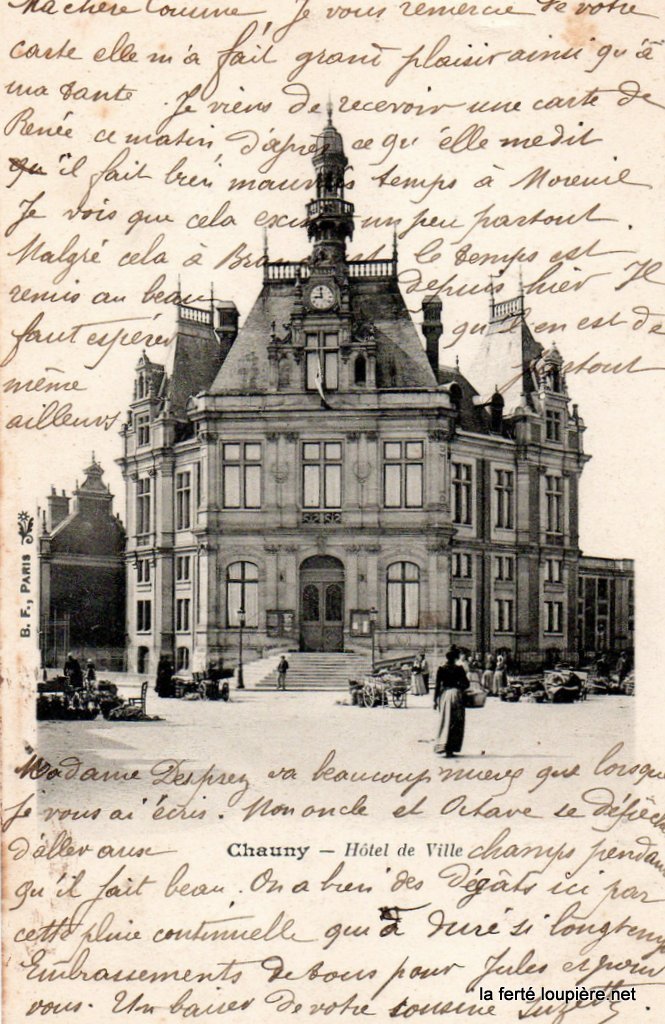 Ma chère Cousine Je vous remercie de votre
carte elle m'a fait grand plaisir ainsi qu'à
ma tante. Je viens de recevoir une carte de
Renée ce matin d'après ce qu'elle me dit
qu'il fait bien mauvais temps à Moreuil
Je vois que cela existe un peu partout.
Malgré cela à le temps est
remis au beau depuis hier Il
faut espérer qu'il en est de
même partout
ailleurs
B. F., PARIS
Madame Desprez va beaucoup mieux que lorsque
je vous ai écris. Mon oncle et Octave se dépêch
d'aller aux champs pendant
Chauny — Hôtel de Ville
qu'il fait beau. On a bien des dégâts ici par
cette pluie continuelle qui a duré si longtemps
Embrassements de tous pour Jules et pour
vous. Un baiser de votre cousine Suzette
la ferté loupière.net